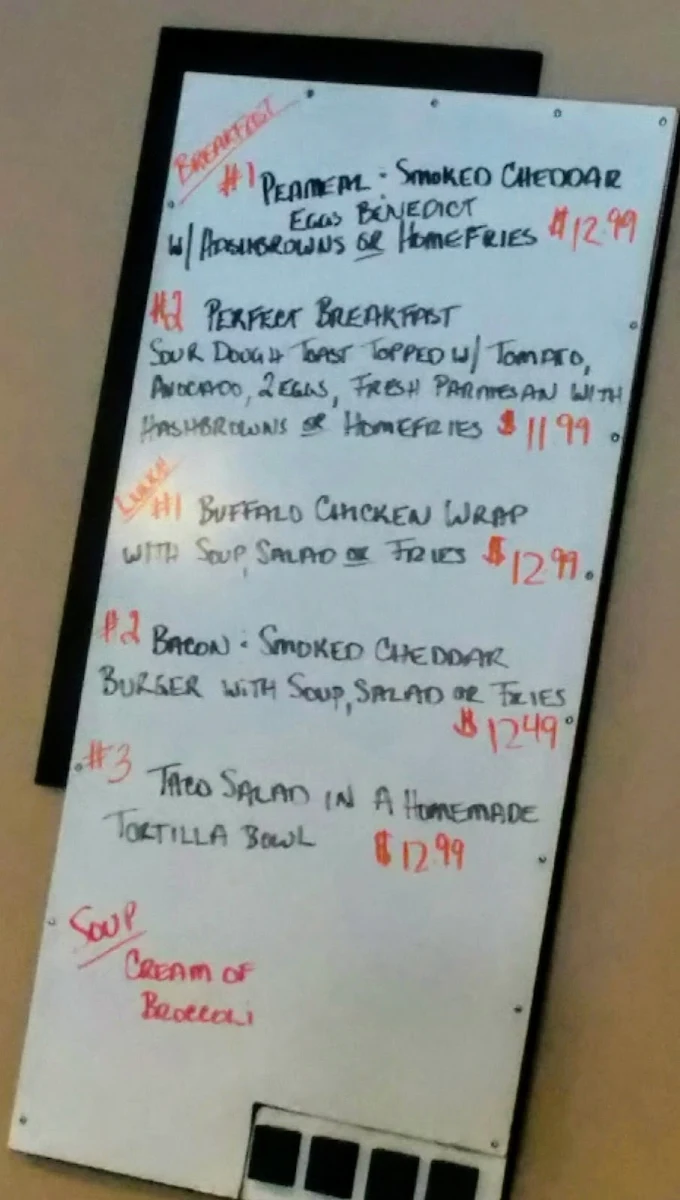 BREAKFAST
#1 PEAMEAL : SMOKED CHEDDAR
EGGS BENEDICT
W/ HASHBROWNS OR HOMEFRIES $12.99
#2 PERFECT BREAKFAST
SOUR DOUGH TOAST TOPPED W/ TOMATO,
AVOCADO, 2 EGGS, FRESH PARMESAN WITH
HASHBROWNS OR HOMEFRIES $11.99
LUNCH
#1 BUFFALO CHICKEN WRAP
WITH SOUP, SALAD OR FRIES $12.99
#2 BACON : SMOKED CHEDDAR
BURGER WITH SOUP, SALAD OR FRIES
$12.49
#3 TACO SALAD IN A HOMEMADE
TORTILLA BOWL $12.99
SOUP
CREAM OF
BROCCOLI